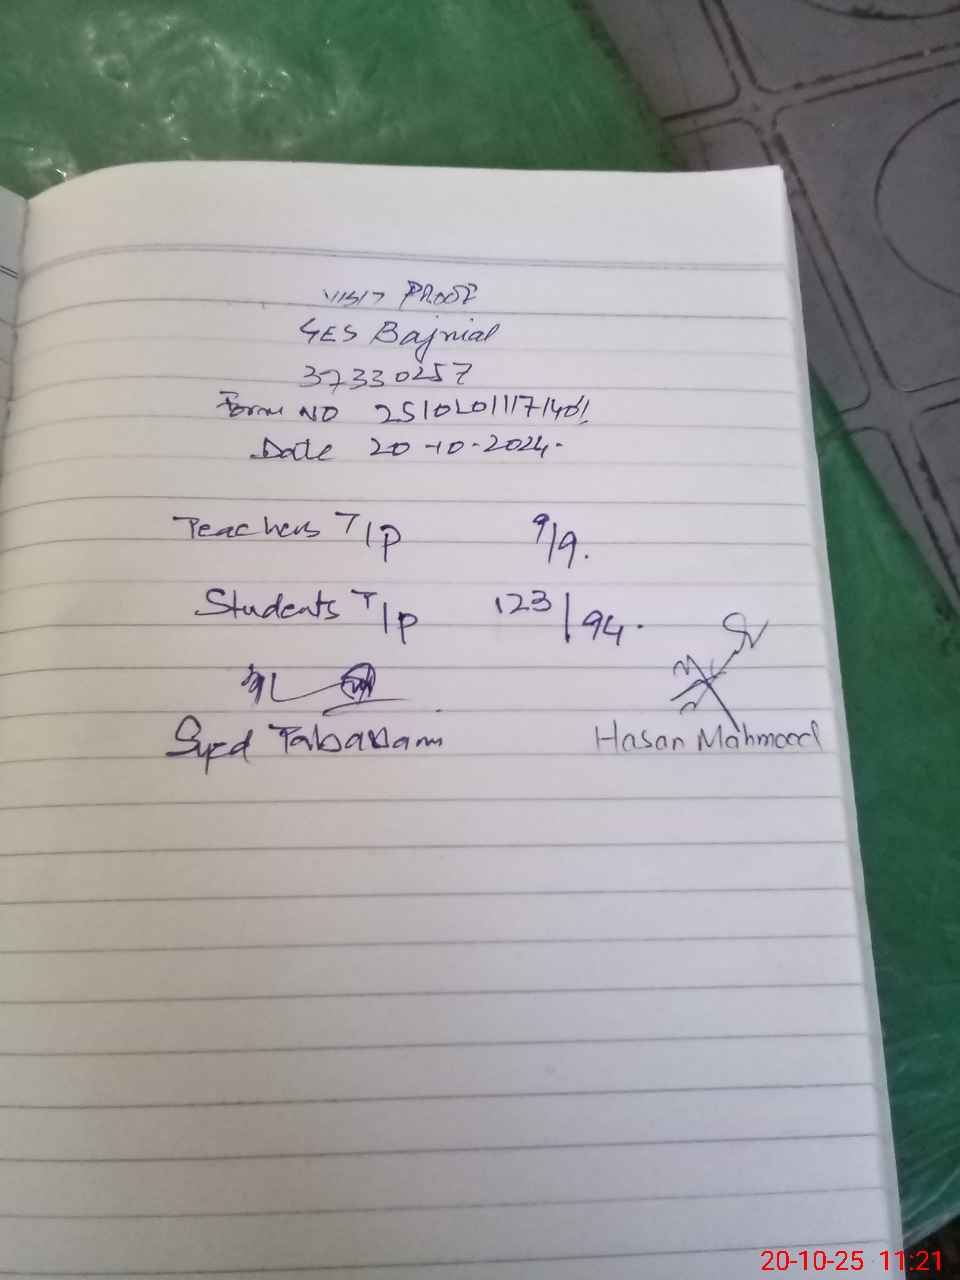 VISIT PROOF
GES Bajnial
37330257
Form NO
Date 20-10-2024.
Teachers T/P 9/9.
Students T/P 123/94.
Syed
Hasan Mahmood
20-10-25 11:21